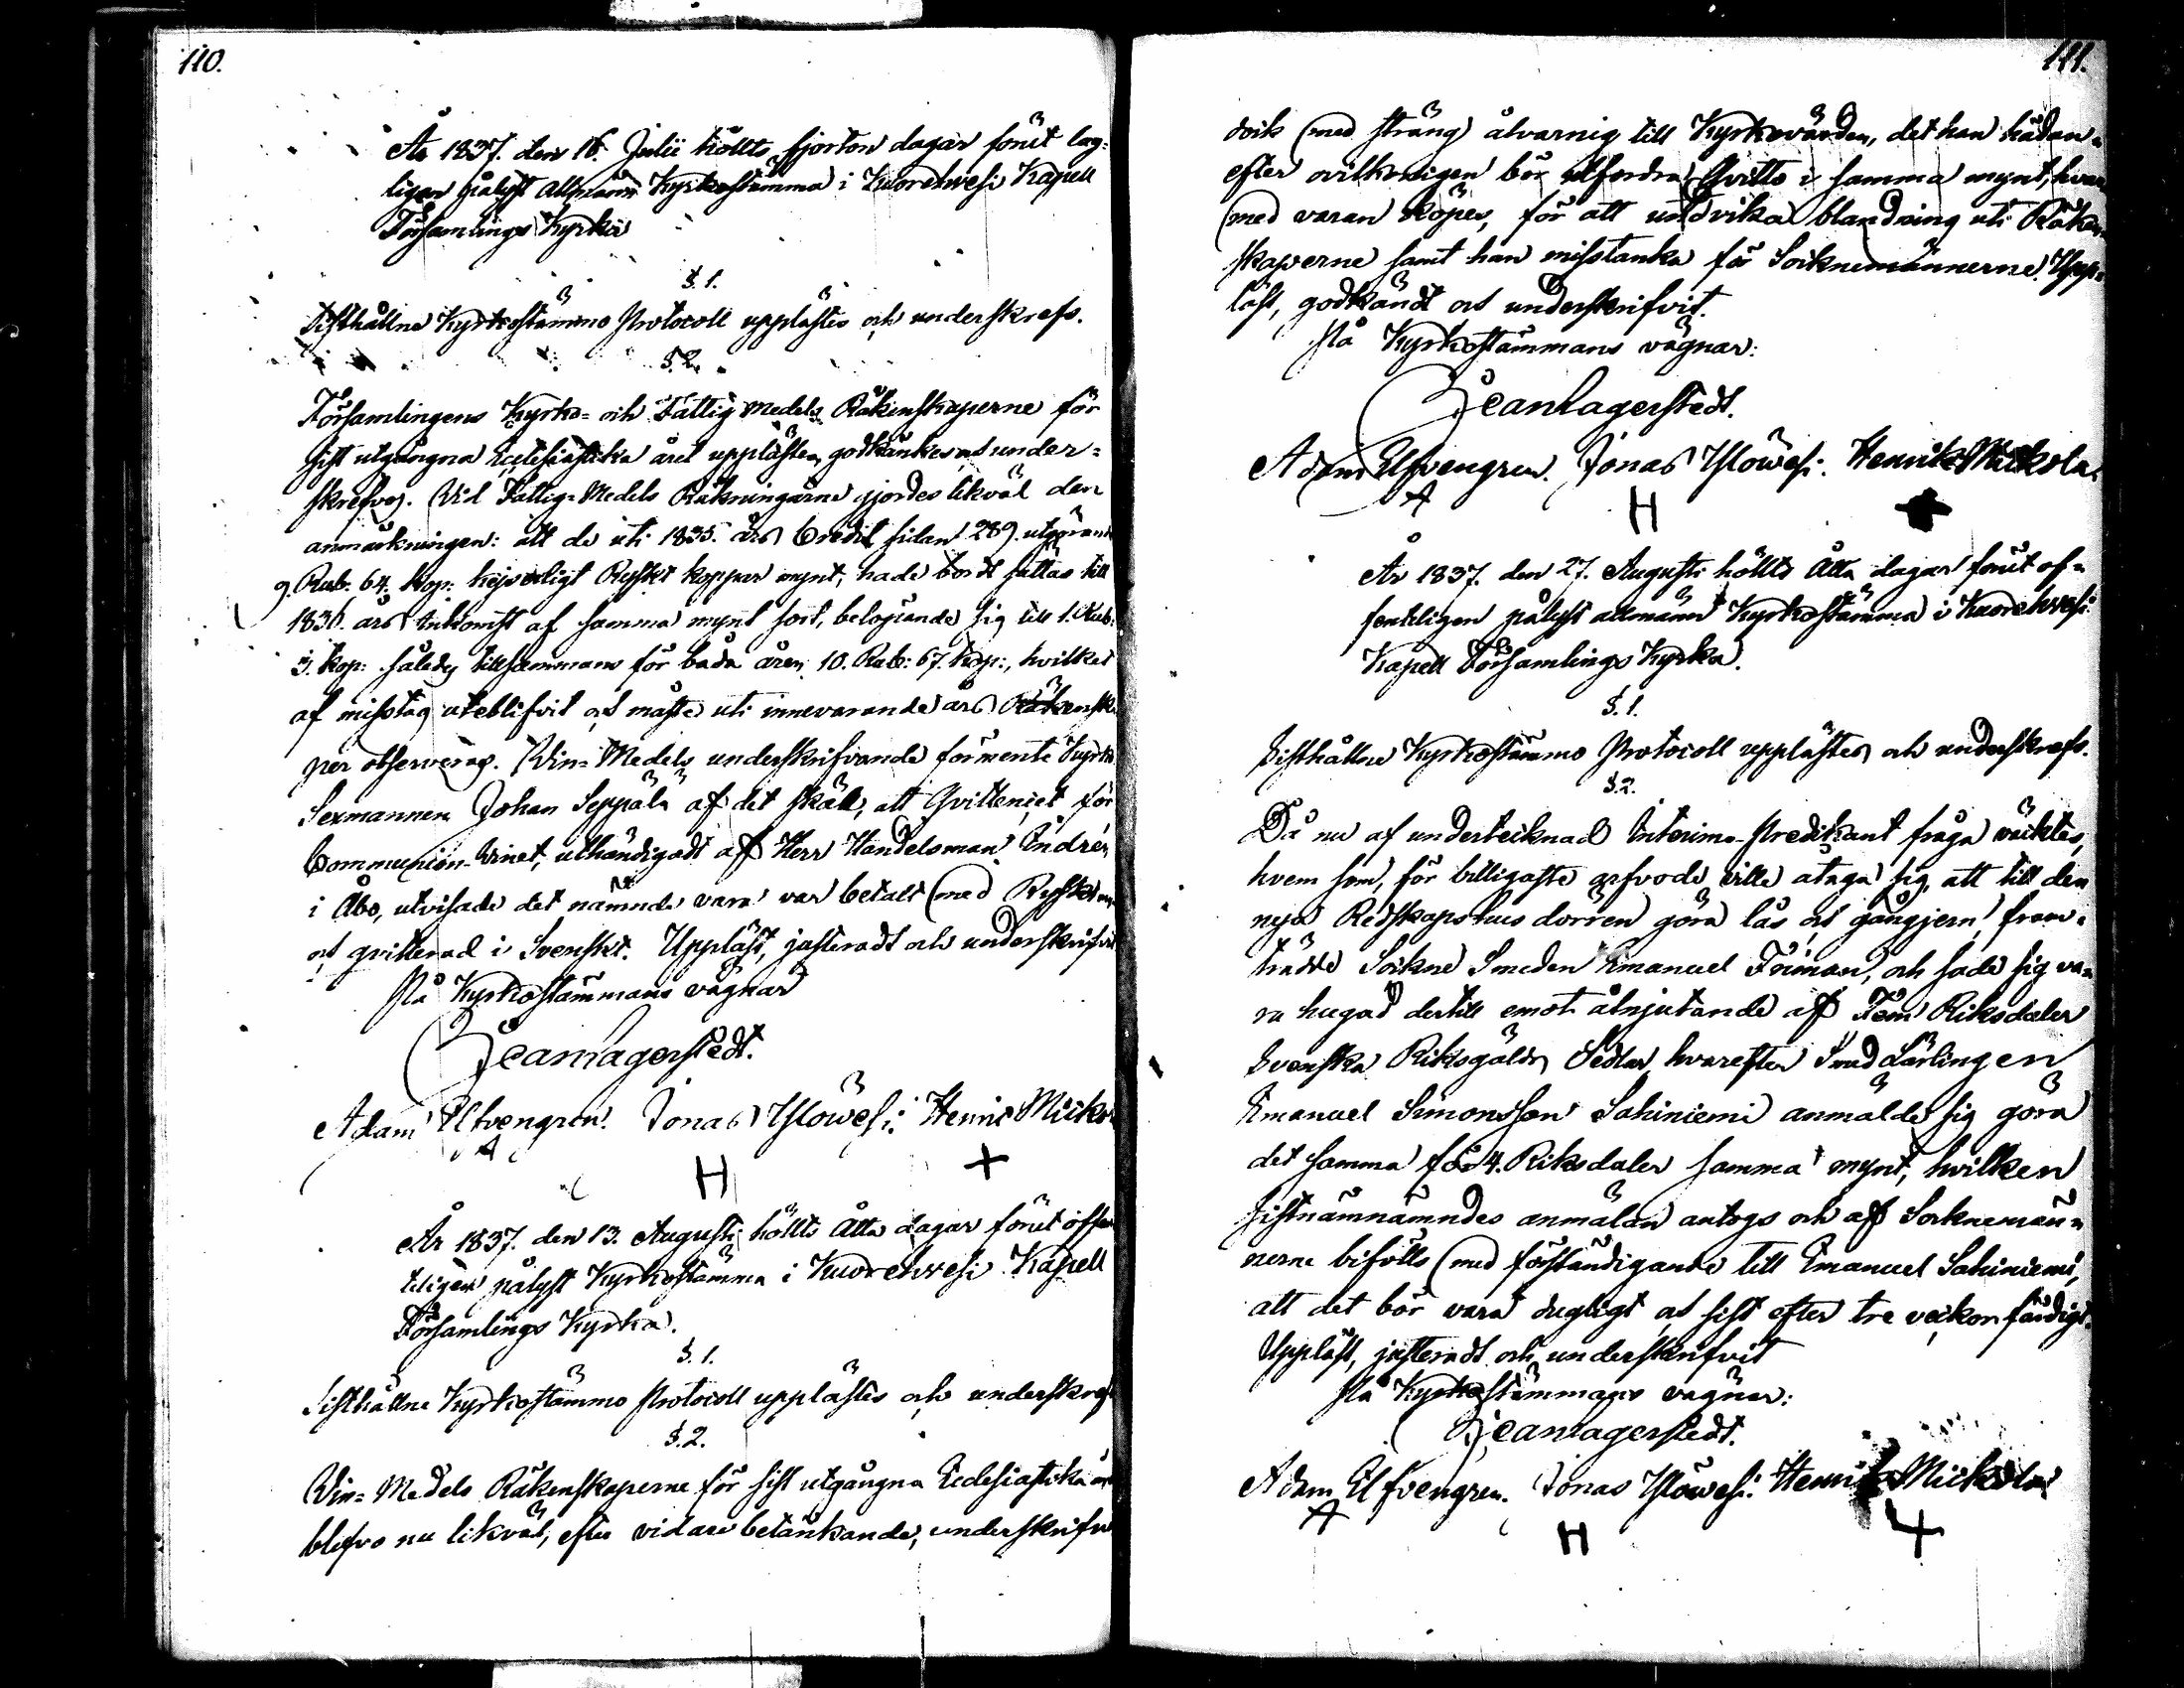 110.
År 1837. den 16. Julii höllts fjorton dagar förut lag=
ligen pålyst allmänn Kyrkostämma i Kuorehwesi Kapell
Församlings Kyrka
§. 1.
Sisthållne Kyrkostämmo Protocoll upplästes och underskrefs.
§. 2.
Församlingens Kyrko= och Fattig Medels Räkenskaperne för
sist utgångna Ecclesiastika året upplästes, godkänkes och under=
skrefvos. Vid Fattig=Medels Räkningarne gjordes likväl den
anmärkningen: att de uti 1835. års Credit sidan 289. utgörande
9. Rub. 64. Kop: kejserligt Ryskt koppar mynt, hade bordt sättas till
1836. års Inkomst af samma mynt sort, belöpande sig till 1. Rub:
3. kop: således tillsammans för båda åren 10. Rub: 67. kop:, hvilket
af misstag uteblifvit och måste uti innevarande års Räkenska
per observeras. Vin=Medels underskrifvande förmente Kyrko
Sexmannen Johan Seppälä af det skäll, att Qvittencet för
Communion-Vinet, uthändigadt af Herr Handelsman Endrén
i Åbo, utvisade det nämnde vara var betalt med Ryskt
och qvitterad i Svenskt. Uppläst, justeradt och underskrifvit
På Kyrkostämmans vägnar
Adam Elfvengren. Jonas Ylöwesi. Henric Mickola
A H +
År 1837. den 13. Augusti höllts Åtta dagar förut offen
teligen pålyst Kyrkostämma i Kuorehwesi Kapell
Församlings Kyrka.
§. 1.
Sisthållne Kyrkostämmo Protocoll upplästes och underskrefs
§. 2.
Vin=Medels Räkenskaperne för sist utgångna Ecclesiastika
blefvo nu likväl, efter vidare betänkande, underskrifvne
111.
dock med sträng åtvarnig till Kyrkovärden, det han hädan=
efter ovilkorligen bör utfordra Qvitto i samma mynt, hvar
med varan köpes, för att undvika blandning uti Räken
skaperne samt han misstanka för Socknemännerne. Upp=
läst, godkändt och underskrifvit.
På Kyrkostämmans vägnar:
Adam Elfvengren. Jonas Ylöwesi. Henrik Mickola
A H +
År 1837. den 27. Augusti höllts Åtta dagar förut of=
fenteligen pålyst allmänn Kyrkostämma i Kuorehwesi
Kapell Församlings Kyrka.
§. 1.
Sisthållne Kyrkostämmo Protocoll upplästes och underskrefs.
§. 2.
Då nu af undertecknad Interims-Predikant fråga väcktes,
hvem som, för billigaste arfvode ville åtaga sig, att till den
nya Redskapshus dörren göra lås och gångjern, fram=
trädde Sockne Smeden Emanuel Friman, och sade sig va=
ra hugad dertill emot åtnjutande af Fem Riksdaler
Svenska Riksgälds Sedlar, hvarefter Smed Lärlingen
Emanuel Simonsson Sahiniemi anmälde sig göra
det samma för 4. Riksdaler samma mynt, hvilken
sistnämnämndes anmälan antogs och af Socknemän=
nerne bifölls med förständigande till Emanuel Sahiniemi,
att det bör vara dugligt och sist efter tre veckor färdigt.
Uppläst, justeradt och underskrifvit
På Kyrkostämmans vägnar:
Adam Elfvengren. Jonas Ylöwesi. Henrik Mickola
A H +